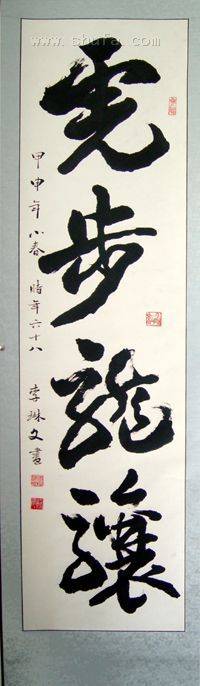 www.shufa.com
虎步龍驤
甲申年小春時年六十八
李琳文書